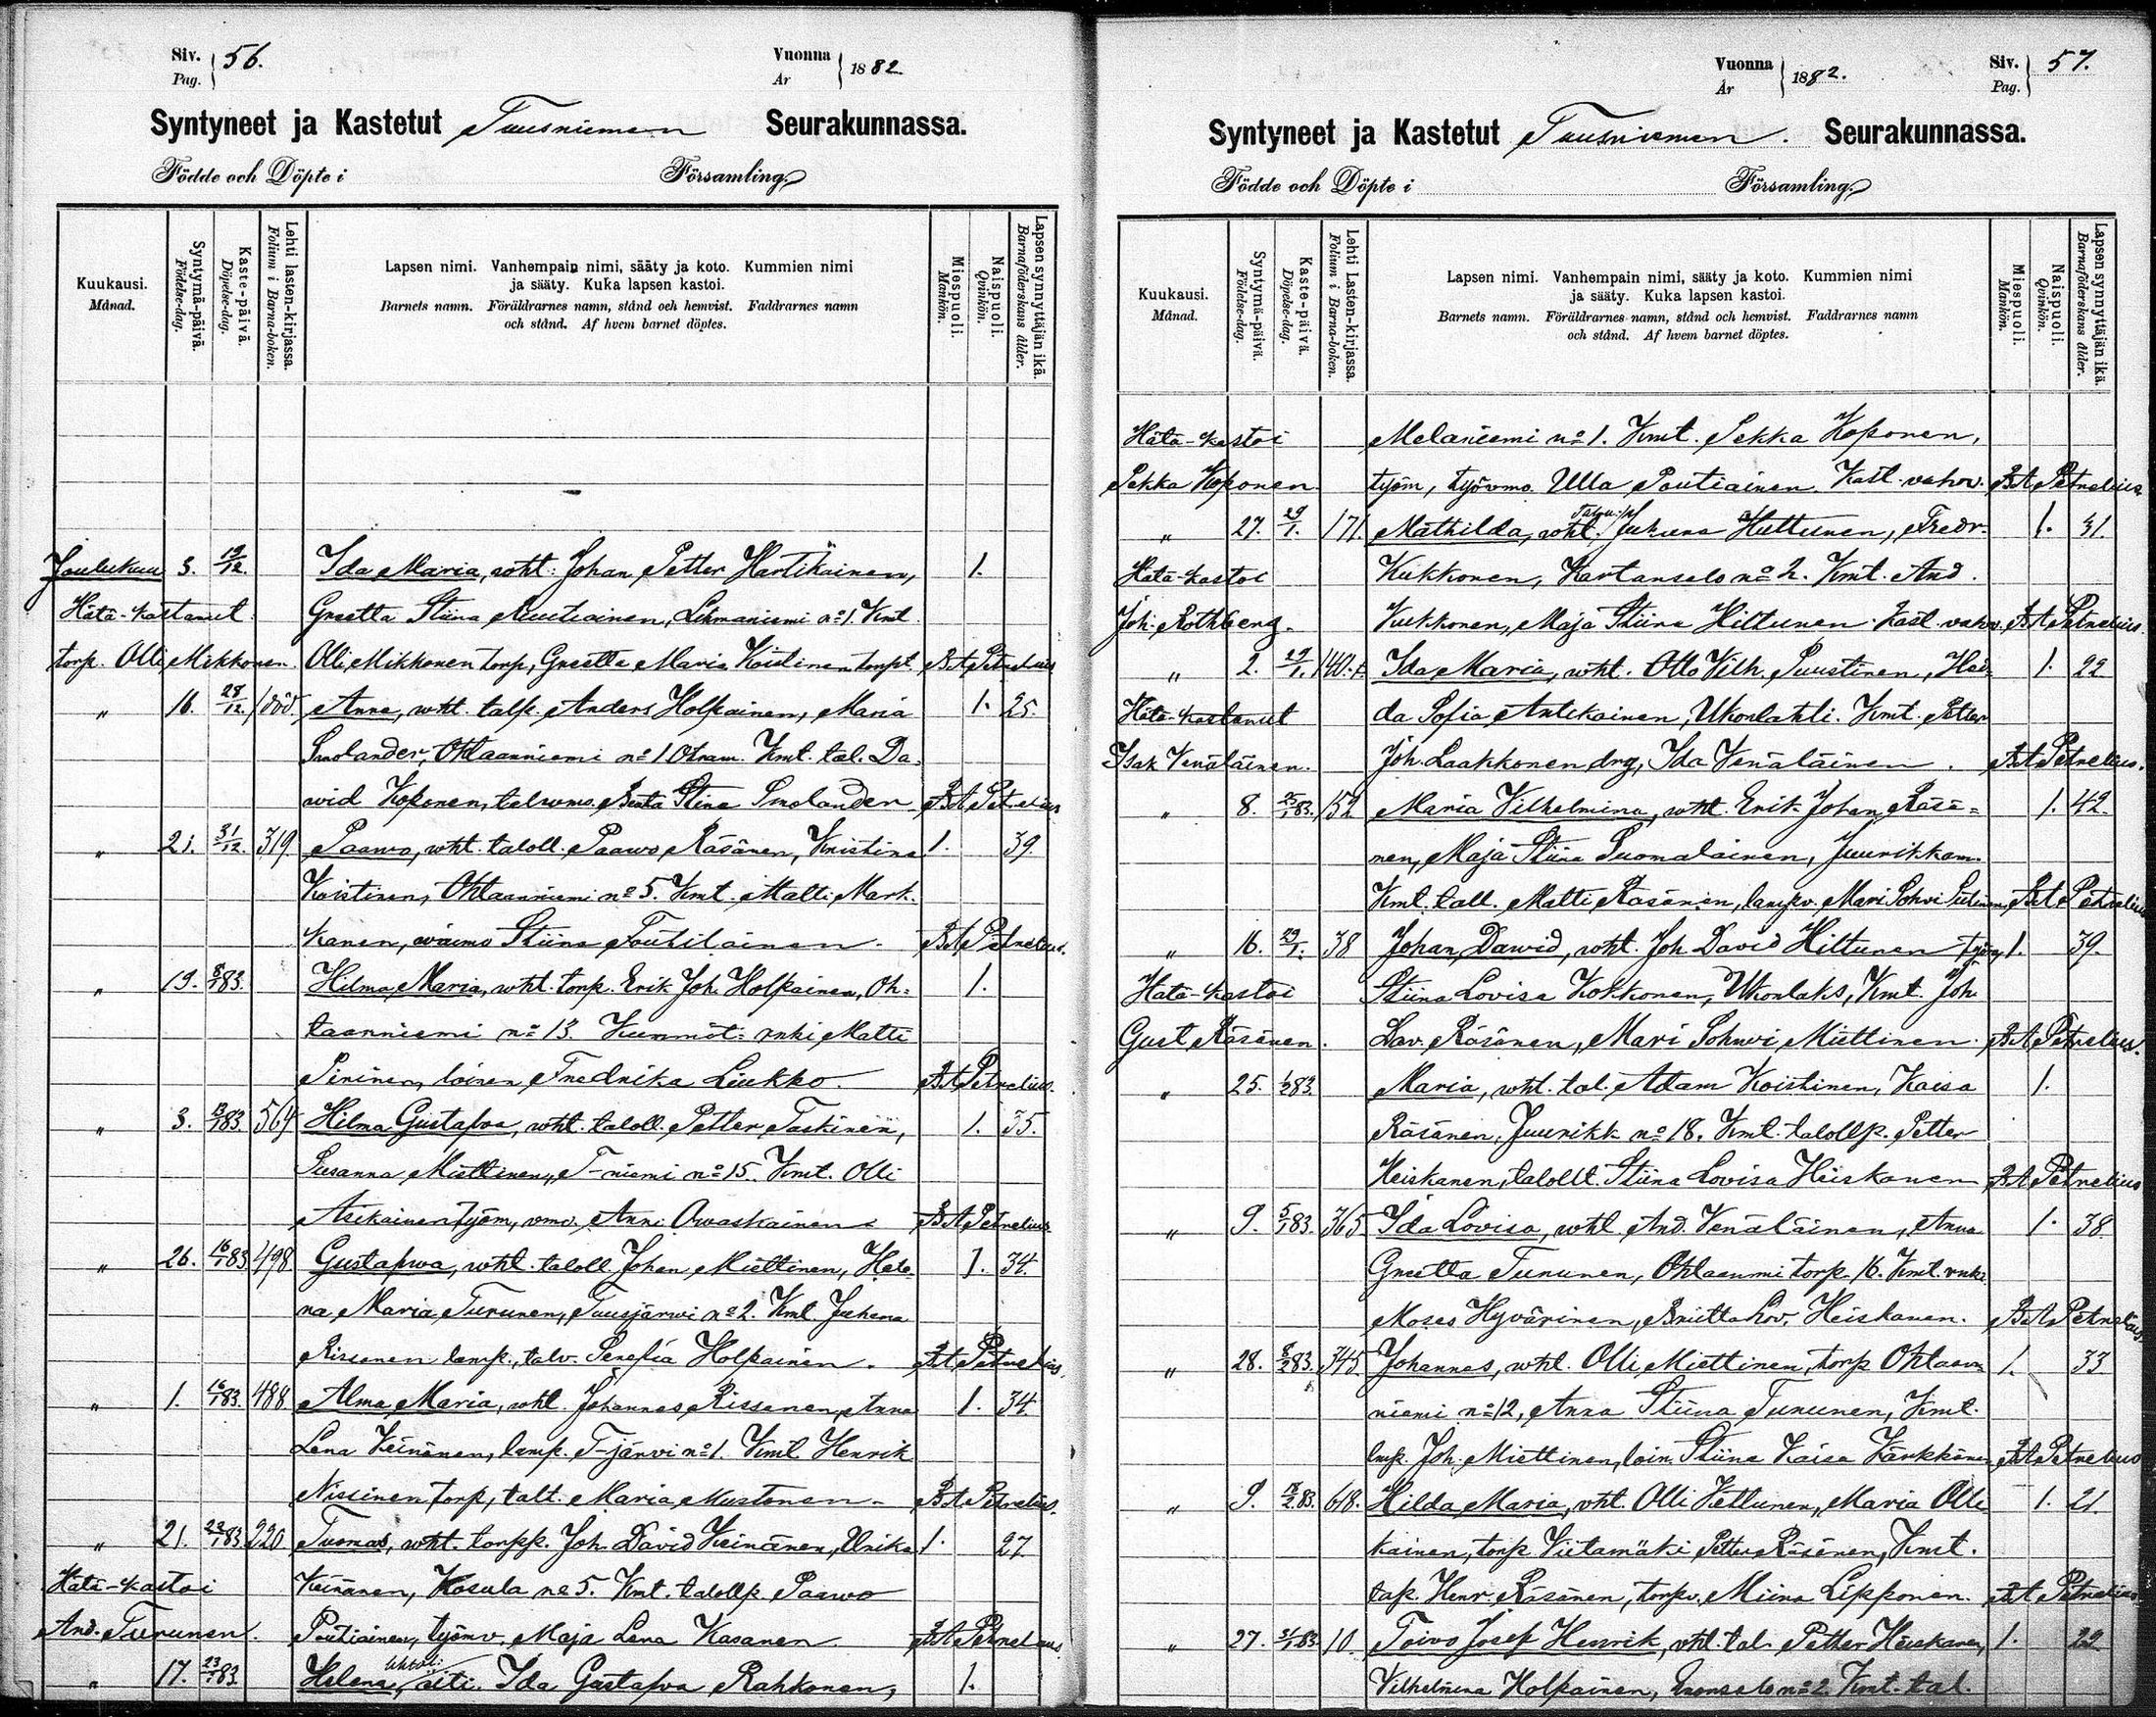 Siv. Pag. 56. Vuonna År 1882
Syntyneet ja Kastetut Tuusniemen Seurakunnassa.
Födde och Döpte i Församling.
Kuukausi. Månad. Syntymä-päivä. Födelse-dag. Kaste-päivä. Döpelse-dag. Lehti lasten-kirjassa. Folium i Barna-boken. Lapsen nimi. Vanhempain nimi, sääty ja koto. Kummien nimi ja sääty. Kuka lapsen kastoi. Barnets namn. Föräldrarnes namn, stånd och hemvist. Faddrarnes namn och stånd. Af hvem barnet döptes. Miespuoli. Mankön. Naispuoli. Qvinkön. Lapsen synnyttäjän ikä. Barnaföderskans ålder.
Joulukuu 3. 19/12. Ida Maria, wht: Johan Petter Hartikainen, 1.
Hätä-kastanut Greetta Stiina Miutiainen, Lehmaniemi no 1. Kmt
torp. Olli Mikkonen. Olli Mikkonen torp, Greetta Maria Koistinen torpt. B A Petrelius
" 16. 28/12. död. Anna, wht. talp. Anders Holpainen, Maria 1. 25.
Smolander, Ohtaanniemi no 1 Otram. Kmt. tal. Da-
wid Koponen, talwmo. Beata Stina Smolander B A Petrelius
" 21. 31/12. 319. Paawo, wht. taloll. Paawo Räsänen, Kristina 1. 39.
Koistinen, Ohtaanniemi no 5. Kmt. Matti Mark-
kanen, waimo Stiina Toutilainen. B A Petrelius.
" 19. 8/1 83. Hilma Maria, wht. torp. Erik Joh. Holpainen, Oh= 1.
taanniemi no 13. Kummit: rnki Matti
Pirinen, loinen Fredrika Liukko. B A Petrelius.
" 3. 13/1 83. 564 Hilma Gustafwa, wht. taloll. Petter Taskinen, 1. 35.
Susanna Miettinen, T-niemi no 15. Kmt. Olli
Asikainen työm, vmo. Anna Owaskainen B A Petrelius
" 26. 16/1 83 498 Gustafwa, wht. taloll. Johan Miettinen, Hele- 1. 34.
na Maria Turunen, Tuusjärwi no 2. Kmt. Juhana
Rissanen lamp., talv. Serafia Holpainen. B A Petrelius.
" 1. 16/1 83. 488 Alma Maria, wht. Johannes Rissanen, Anna 1. 34.
Lena Keinänen, lamp. T-järvi no 1. Kmt. Henrik
Nissinen torp, talt. Maria Mustonen. B A Petrelius.
" 21. 22/1 83 220 Tuomas, wht. torpp. Joh. David Keinänen, Ulrika 1. 27.
Hätä-kastoi Keinänen, Kosula no 5. Kmt. talollp. Paawo
And. Turunen. Poutiainen, työmv. Maja Lena Kasanen. B A Petrelius.
" 17. 23/1 83. Helena, äiti. Ida Gustafva Rahkonen, 1.
Vuonna År 1882. Siv. Pag. 57.
Syntyneet ja Kastetut Tuusniemen. Seurakunnassa.
Födde och Döpte i Församling.
Kuukausi. Månad. Syntymä-päivä. Födelse-dag. Kaste-päivä. Döpelse-dag. Lehti Lasten-kirjassa. Folium i Barna-boken. Lapsen nimi. Vanhempain nimi, sääty ja koto. Kummien nimi ja sääty. Kuka lapsen kastoi. Barnets namn. Föräldrarnes namn, stånd och hemvist. Faddrarnes namn och stånd. Af hvem barnet döptes. Miespuoli. Mankön. Naispuoli. Qvinkön. Lapsen synnyttäjän ikä. Barnaföderskans ålder.
Hätä-kastoi Melaniemi no 1. Kmt. Pekka Koponen,
Pekka Koponen. työm, työvmo. Ulla Poutiainen. Kast. vahv. B A Petrelius.
" 27. 29/1. 171. Mathilda, wht. Juhana Huttunen, Fredr. 1. 31.
Hätä-kastoi Kukkonen, Kartansalo no 2. Kmt. And.
Joh. Rothberg. Kukkonen, Maja Stiina Hiltunen. Kast. vahv. B A Petrelius.
" 2. 29/1. 140. Ida Maria, wht. Otto Vilh. Puustinen, Hed- 1. 22
Hätä-kastanut da Sofia Antikainen, Ukonlahti. Kmt. Petter
Isak Venäläinen. Joh. Laakkonen drg, Ida Venäläinen. B A Petrelius.
" 8. 83. 152 Maria Vilhelmina, wht. Erik Johan Räsä= 1. 42.
nen, Maja Stiina Suomalainen, Juurikkam.
Kmt. tall. Matti Räsänen, lampv. Mari Sohvi B A Petrelius
" 16. 29/1. 38 Johan Dawid, wht. Joh. David Hiltunen 1. 39.
Hätä-kastoi Stiina Lovisa Kokkonen, Ukonlaks, Kmt. Joh.
Gust. Räsänen. Dav. Räsänen, Mari Sohwi Miettinen. B A Petrelius.
" 25. 1/2 83. Maria, wht. tal. Adam Koistinen, Kaisa 1.
Räsänen, Juurikk. no 18. Kmt. talollp. Petter
Heiskanen, talollt. Stiina Lovisa Heiskanen B A Petrelius
" 9. 5/1 83. 365 Ida Lovisa, wht. And. Venäläinen, Anna 1. 38.
Greetta Turunen, Ohtaanmi torp. 16. Kmt. rnki
Moses Hyvärinen, Briitta Lov. Heiskanen. B A Petrelius
" 28. 8/2 83. 345 Johannes, wht. Olli Miettinen, torp. Ohtaan- 1. 33
niemi no 12, Anna Stiina Turunen, Kmt.
lmp. Joh. Miettinen, loin. Stiina Kaisa Kärkkäinen B A Petrelius
" 9. 83. 618. Hilda Maria, wht. Olli Vettunen, Maria Olli- 1. 21.
kainen, torp. Viitamäki Petter Räsänen, Kmt.
tap. Henr. Räsänen, torpv. Miina Lipponen. B A Petrelius
" 27. 31/1 83. 10. Toivo Josef Henrik, wht. tal. Petter Heiskanen, 1. 22
Vilhelmina Holpainen, no 2. Kmt. tal.